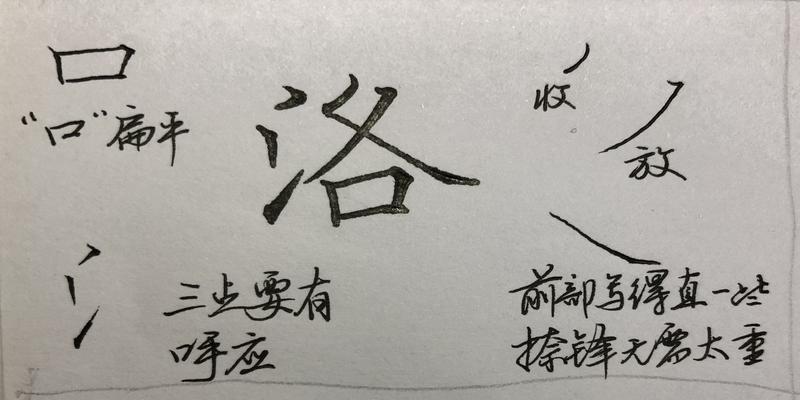 “口”扁平
洛
收
放
三点要有
呼应
前部写得直一些
捺锋无需太重